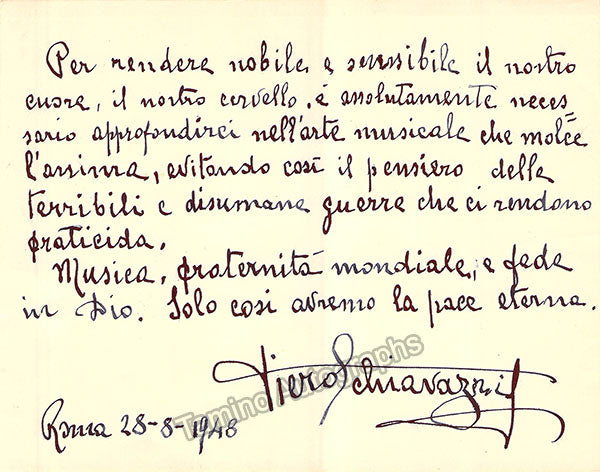 Per rendere nobile e sensibile il nostro
cuore, il nostro cervello, è assolutamente neces
sario approfondirci nell'arte musicale che molce
l'anima, evitando così il pensiero delle
terribili e disumane guerre che ci rendono
fraticida.
Musica, fraternità mondiale, e fede
in Dio. Solo così avremo la pace eterna.
Piero Schiavazzi
Tamino Autographs
Roma 28-8-1948